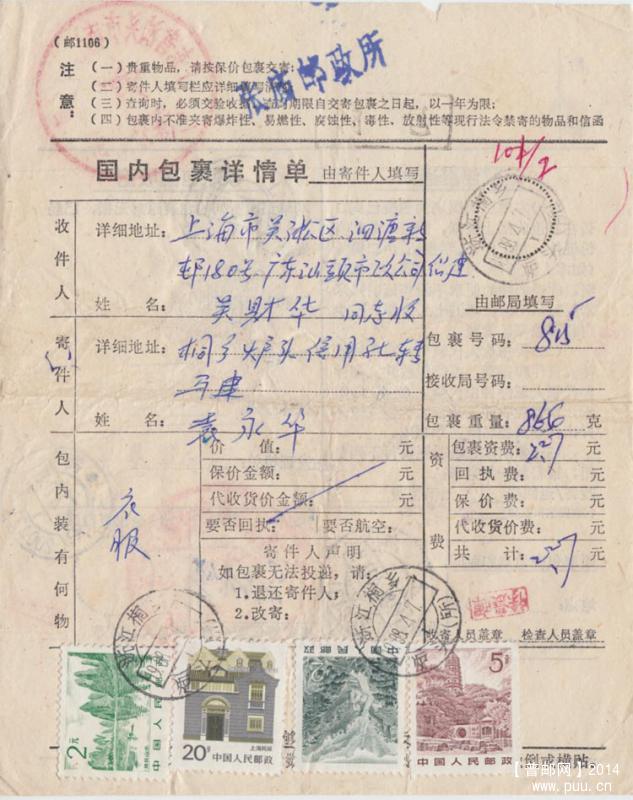 （邮1106）
注意：
（一）贵重物品，请按保价包裹交寄：
（二）寄件人填写栏应详细填写清
（三）查询时，必须交验收据 期限自交寄包裹之日起，以一年为限；
（四）包裹内不准夹寄爆炸性、易燃性、腐蚀性、毒性、放射性等现行法令禁寄的物品和信函
邮政所
国内包裹详情单 由寄件人填写
收件人
详细地址：上海市吴淞区泗塘新
邨180号广东汕头市政公司
姓名：吴财华 同志收
寄件人
详细地址：桐乡炉头信用社转
姓名：袁永华
由邮局填写
包裹号码：815
接收局号码：
包裹重量：克
包内装有何物
衣服
价值：元
保价金额：元
代收货价金额：元
要否回执： 要否航空：
寄件人声明
如包裹无法投递，请：
1.退还寄件人；
2.改寄：
资费
包裹资费：2.27元
回执费：元
保价费：元
代收货价费：元
共计：2.27元
收寄人员盖章 检查人员盖章
浙江桐乡
2元
中国人民邮政
20分
上海民居
中国人民邮政
中国人民邮政
5分
中国人民邮政
倒或横贴。
【普邮网】2014
www.puu.cn